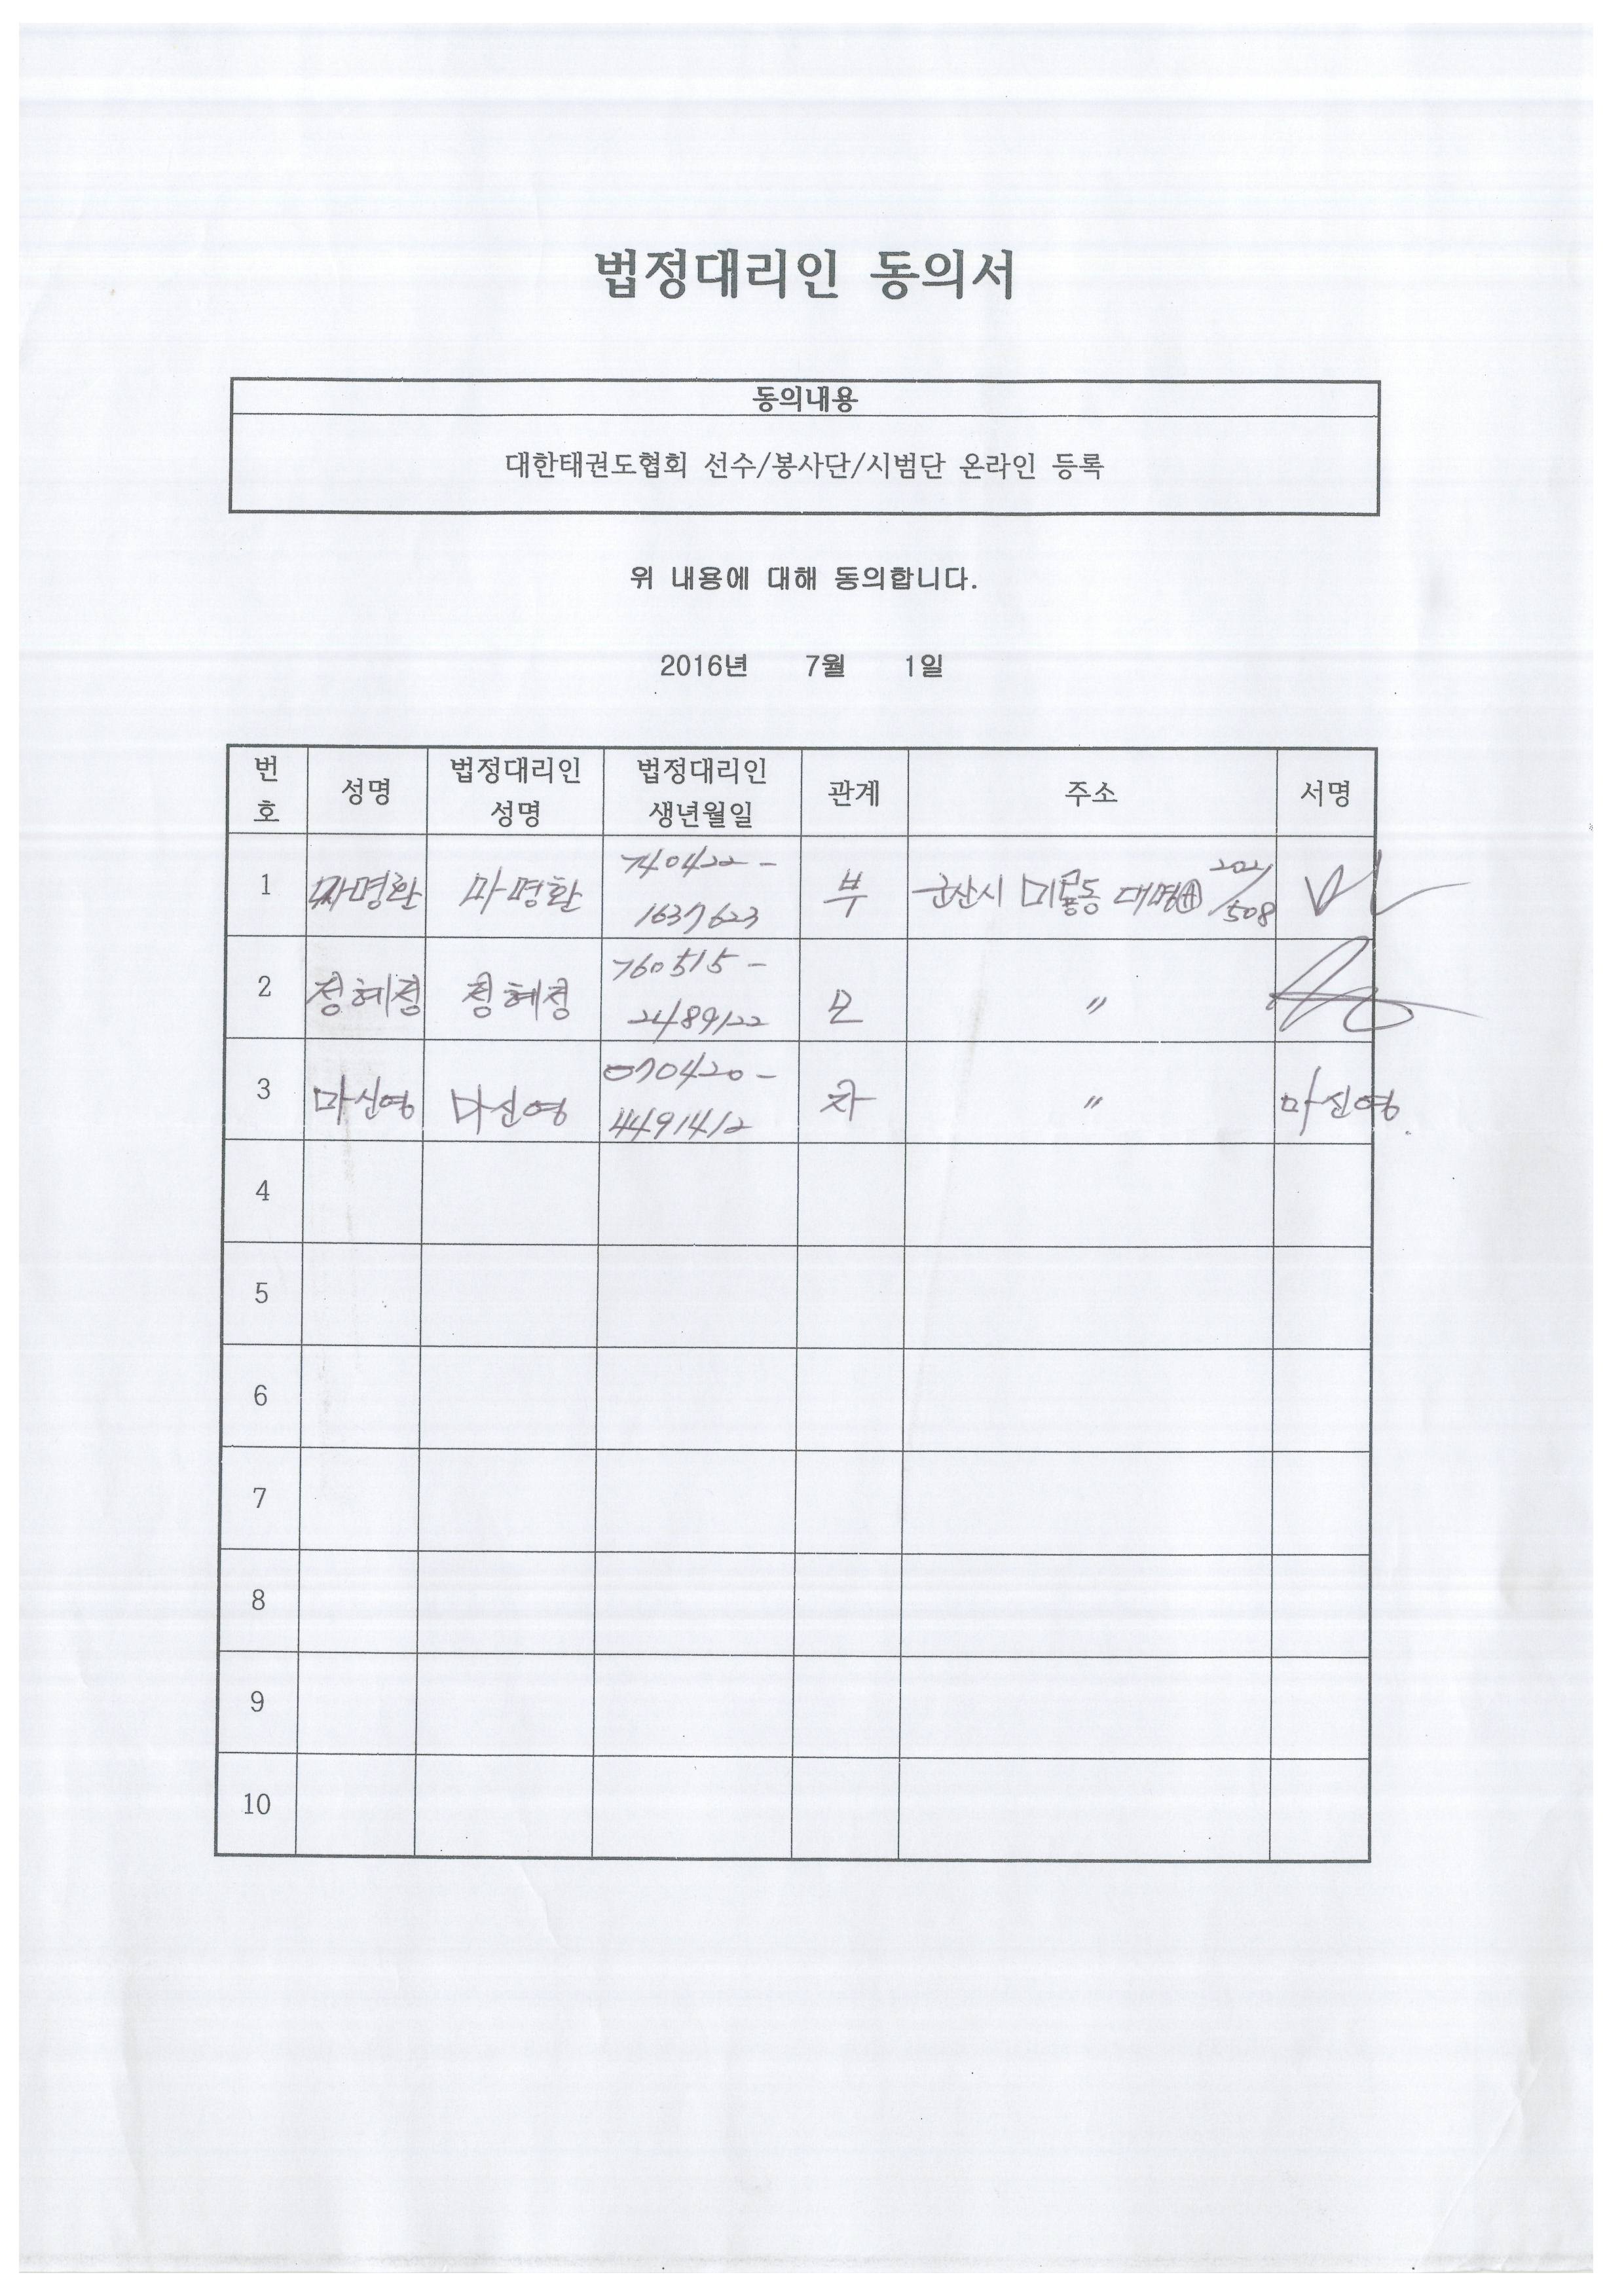 법정대리인 동의서
동의내용
대한태권도협회 선수/봉사단/시범단 온라인 등록
위 내용에 대해 동의합니다.
2016년 7월 1일
번호 성명 법정대리인 성명 법정대리인 생년월일 관계 주소 서명
1 마명환 마명환 740422-1637623 부 군산시 미룡동 대명 202/508
2 정혜정 정혜정 760515-2489122 모 〃
3 마신영 마신영 070420-4491412 자 〃 마신영.
4
5
6
7
8
9
10